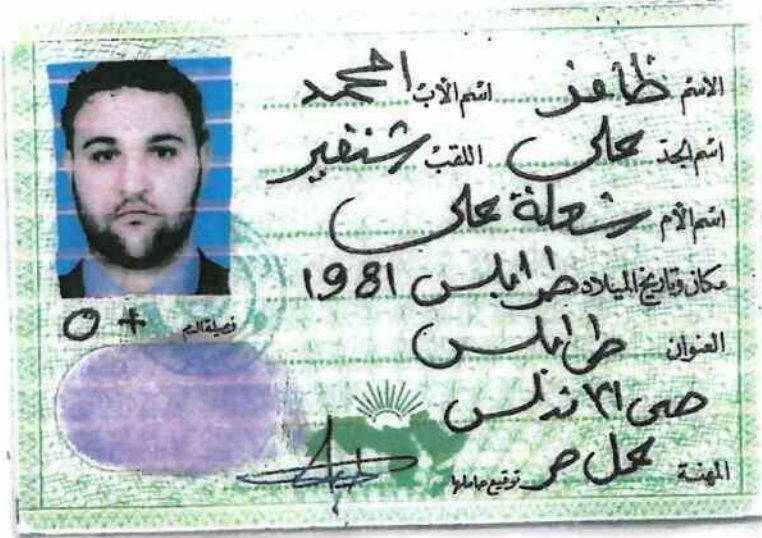 الاسم ظافر اسم الأب امحمد
اسم الجد علي اللقب شنفير
اسم الأم شعلة علي
مكان وتاريخ الميلاد طرابلس 1981
فصيلة الدم O +
العنوان طرابلس
حي الاندلس
المهنة عمل حر توقيع حاملها